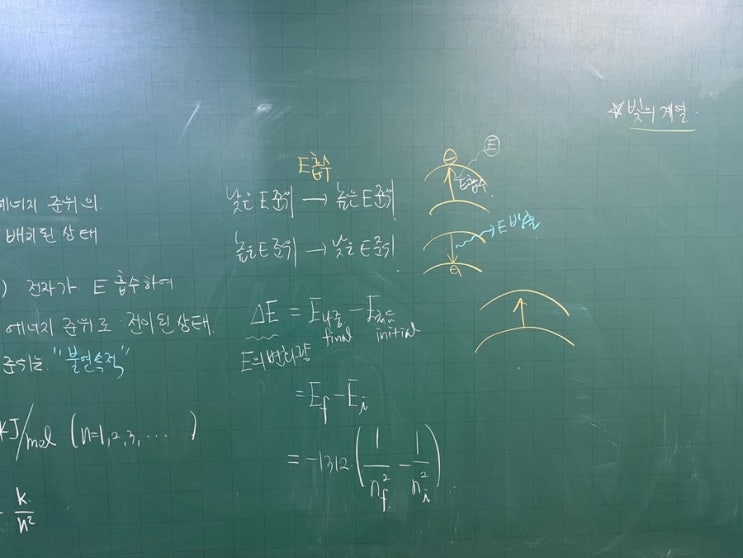 에너지 준위의
배치된 상태
) 전자가 E 흡수하여
에너지 준위로 전이된 상태.
준위는 "불연속적"
kJ/mol (n=1,2,3, ⋯ )
- k/n²
E흡수
낮은 E준위 → 높은 E준위
높은 E준위 → 낮은 E준위
ΔE = E나중 - E처음
final initial
E의 변화량
= Ef - Ei
= -1312 (1/nf² - 1/ni²)
E
E흡수
E방출
☆빛의 계열